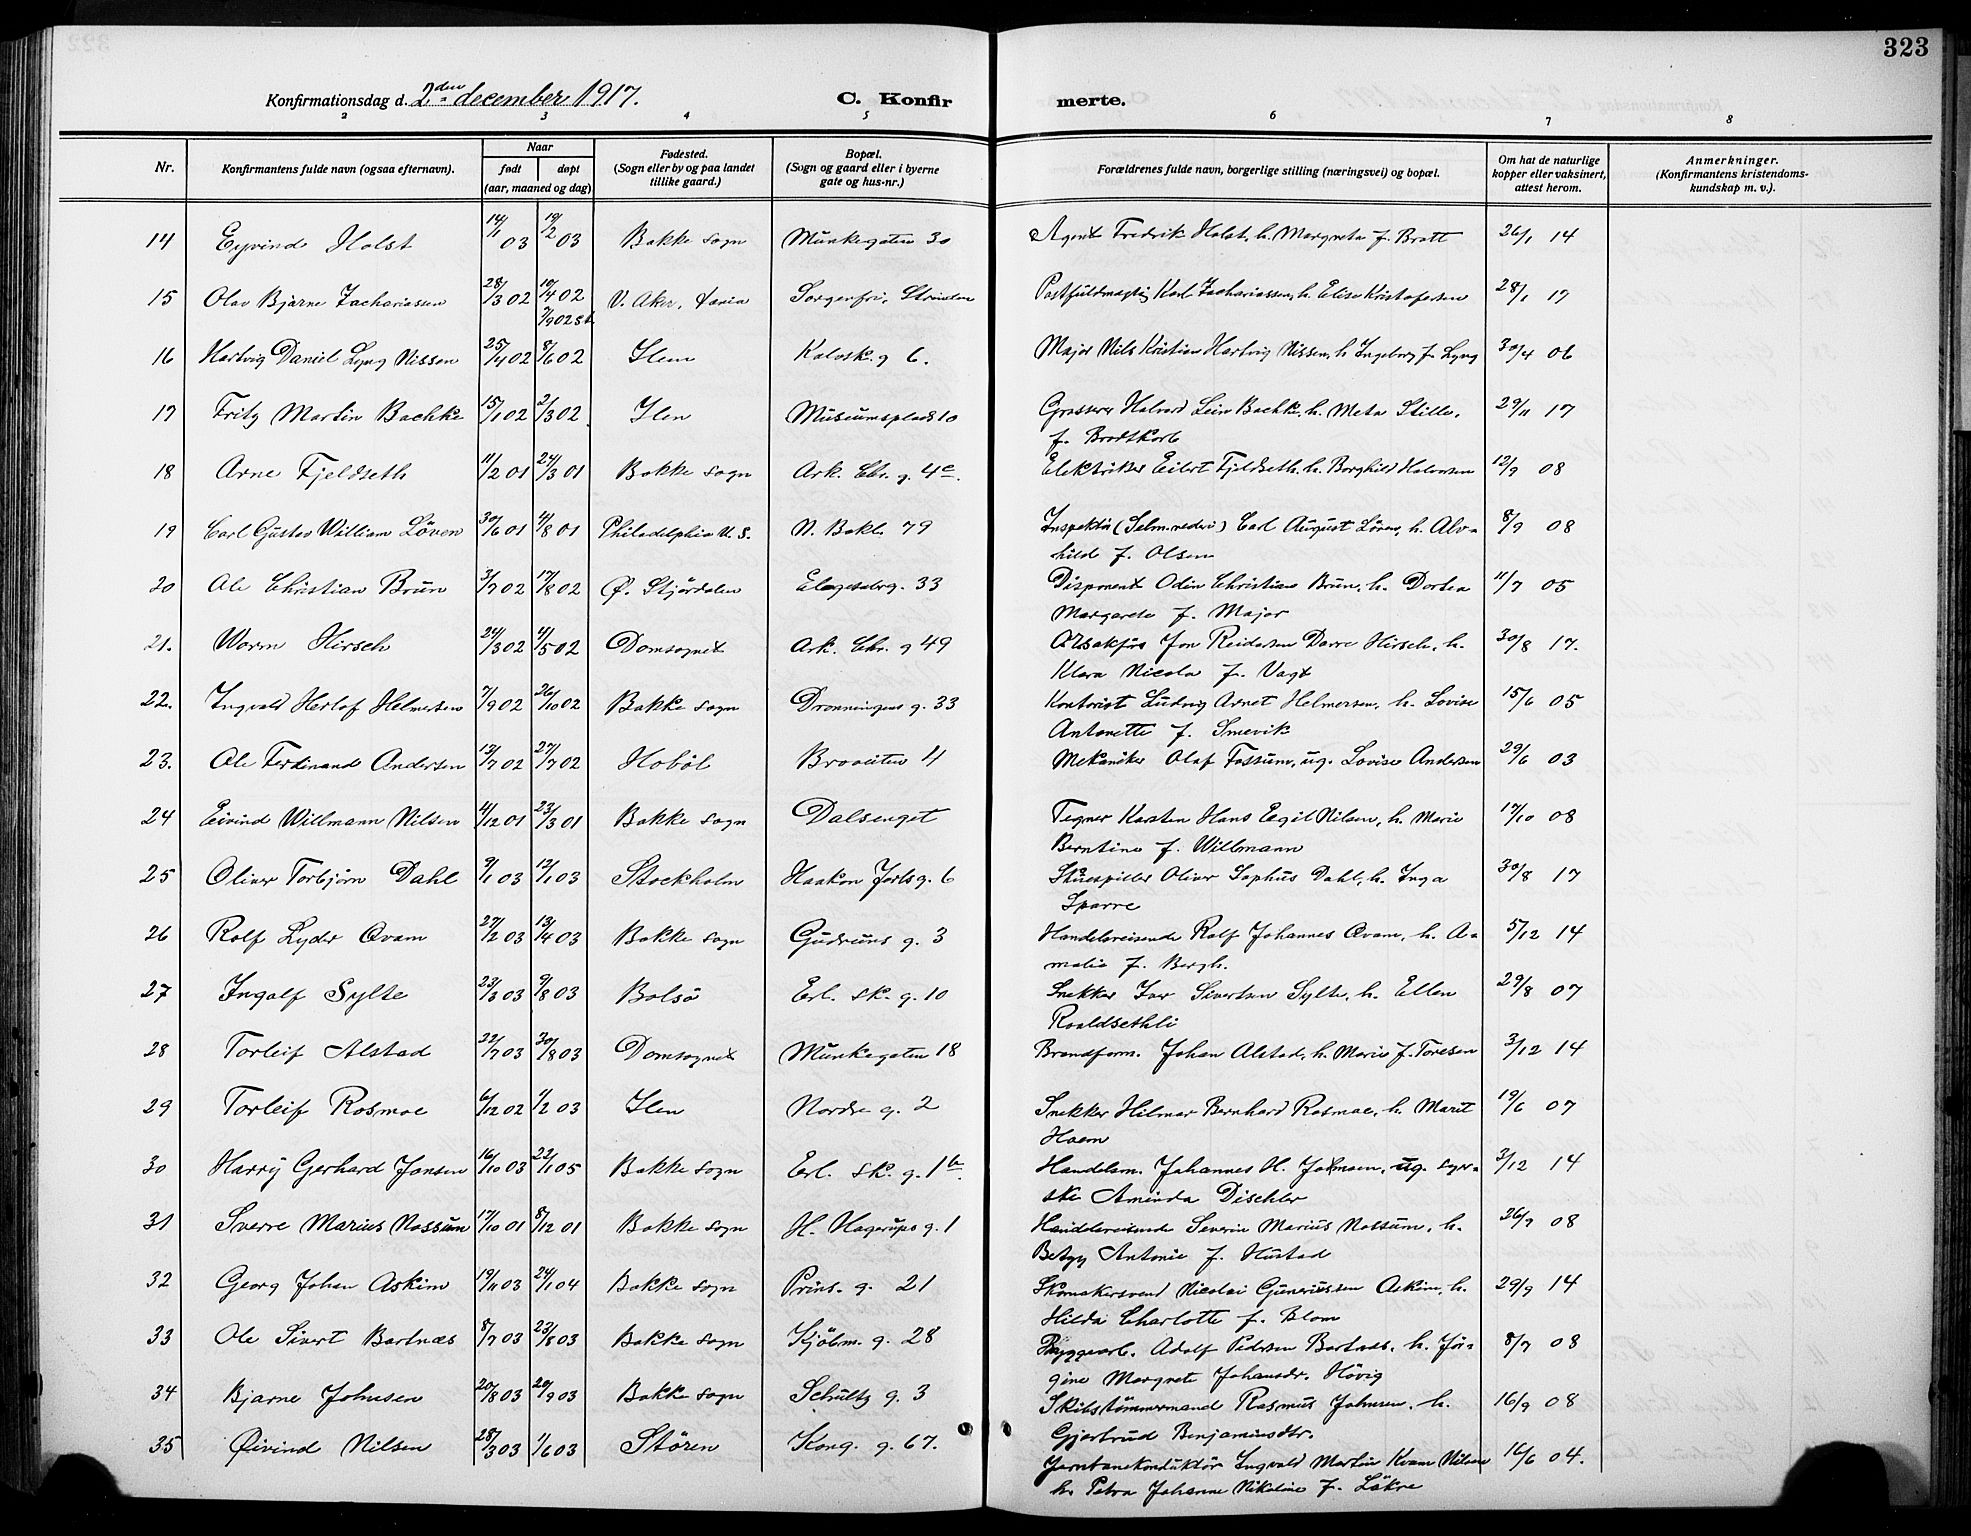 323
Konfirmationsdag d. 2den december 1917. C. Konfir merte.
2 3 4 5 6 7 8
Nr. Konfirmantens fulde navn (ogsaa efternavn). Naar født døpt (aar, maaned og dag) Fødested. (Sogn eller by og paa landet tillike gaard.) Bopæl. (Sogn og gaard eller i byerne gate og hus-nr.) Forældrenes fulde navn, borgerlige stilling (næringsvei) og bopæl. Om hat de naturlige kopper eller vaksinert, attest herom. Anmerkninger. (Konfirmantens kristendomskundskap m. v.).
14 Eyvind Holst 14/1 03 19/2 03 Bakke sogn Munkegaten 30 Agent Fredrik Holst, h. Margreta f. Bratt 26/1 14
15 Olav Bjarne Zachariassen 28/3 02 10/4 02 V. Aker, Sorgenfri, Strinden Postfuldmægtig Karl Zachariassen, h. Elise Kristofersen 28/1 17
7/9 02 st.
16 Hartvig Daniel Lyng Nissen 25/4 02 8/6 02 Ilen Kalvsk. g 6. Major Nils Kristian Hartvig Nissen, h Ingeborg f. Lyng 30/4 06
17 Fritz Martin Bachke 15/1 02 2/3 02 Ilen Museumsplads 10 Grosserer Halvard Leiv Bachke, h. Meta Stille,
f. Brodtkorb 29/11 17
18 Arne Fjeldseth 11/2 01 24/3 01 Bakke sogn Ark. Chr. g. 4c. Elektriker Eilert Fjeldseth, h. Borghild Halvorsen 12/9 08
19 Carl Gustav William Löven 30/6 01 4/8 01 Philadelphia U. S. N. Bakl. 79 Inspektör Carl August Löven, h. Alv-
hild f. Olsen 8/9 08
20 Ole Christian Brun 3/7 02 17/8 02 Ø. Stjördalen 33 Disponent Odin Christian Brun, h. Dortea
Margarete f. Major 11/7 05
21. Worm Hirsch 24/3 02 4/5 02 Domsognet Ark. Chr. g 49 O.R.sakförer Jon Reidarsen Darre Hirsch, h.
Klara Nicola f. Vagt 30/8 17.
22. Ingvald Herlof Helmersen 7/9 02 26/10 02 Bakke sogn Dronningens g. 33 Kontorist Ludvig Arnet Helmersen, h. Lovise
Antonette f. Smevik 15/6 05
23. Ole Ferdinand Andersen 13/7 02 27/7 02 Hoböl Broveiten 4 Mekaniker Olaf Fossum, ug. Lovise Andersen 29/6 03
24 Eivind Willmann Nilsen 4/12 01 23/3 01 Bakke sogn Dalsenget Tegner Karsten Hans Egil Nilsen, h. Marie
Berntine f. Willmann 17/10 08
25 Oliver Torbjörn Dahl 9/1 03 12/1 03 Stockholm Haakon Jarls g. 6 Skuespiller Oliver Sophus Dahl, h. Inga
Sparre 30/8 17
26 Rolf Lyder Qvam 27/2 03 13/4 03 Bakke sogn Gudruns g. 3 Handelsreisende Rolf Johannes Qvam, h. A-
malie f. Bergh. 5/12 14
27 Ingolf Sylte 23/3 03 9/8 03 Bolsö Erl. sk. g. 10 Snekker Ivar Sivertsen Sylte, h. Ellen
Roaldsethli 29/8 07
28 Torleif Alstad 22/7 03 30/8 03 Domsognet Munkegaten 18 Brandform. Johan Alstad, h. Marie f. Toresen 3/12 14
29 Torleif Rosmoe 6/12 02 1/2 03 Ilen Nordre g. 2 Snekker Hilmar Bernhard Rosmoe, h. Marit
Haem 19/6 07
30 Harry Gerhard Jonsen 16/10 03 22/1 05 Bakke sogn Erl. sk. g. 1b. Handelsm. Johannes H. Johnsen, ug. syer-
ske Aminda Dischler 3/12 14
31 Sverre Marius Nossum 17/10 01 8/12 01 Bakke sogn H. Hagerups g. 1 Handelsreisende Severin Marius Nossum, h.
Betzy Antonie f. Hustad 26/9 08
32 Georg Johan Askim 19/11 03 24/1 04 Bakke sogn Prins. g. 21 Skomakersvend Nicolai Guneriussen Askim, h.
Hilda Charlotte f. Blom 29/9 14
33 Ole Sivert Bartnæs 8/7 03 23/8 03 Bakke sogn Kjöbm. g. 28 Bryggearb. Adolf Pedersen Bartnæs, h. Jör-
gine Margrete Johansdr. Hövig 8/7 08
34 Bjarne Johnsen 20/8 03 20/9 03 Bakke sogn Schultz g. 3 Skibstömmermand Rasmus Johnsen, h.
Gjertrud Benjaminsdtr. 16/9 08
35 Øivind Nilsen 28/3 03 1/6 03 Stören Kong. g. 67. Jernbanekonduktör Ingvald Martin Kvam Nilsen
h. Petra Johanne Nikoline f. Løkre 16/6 04.